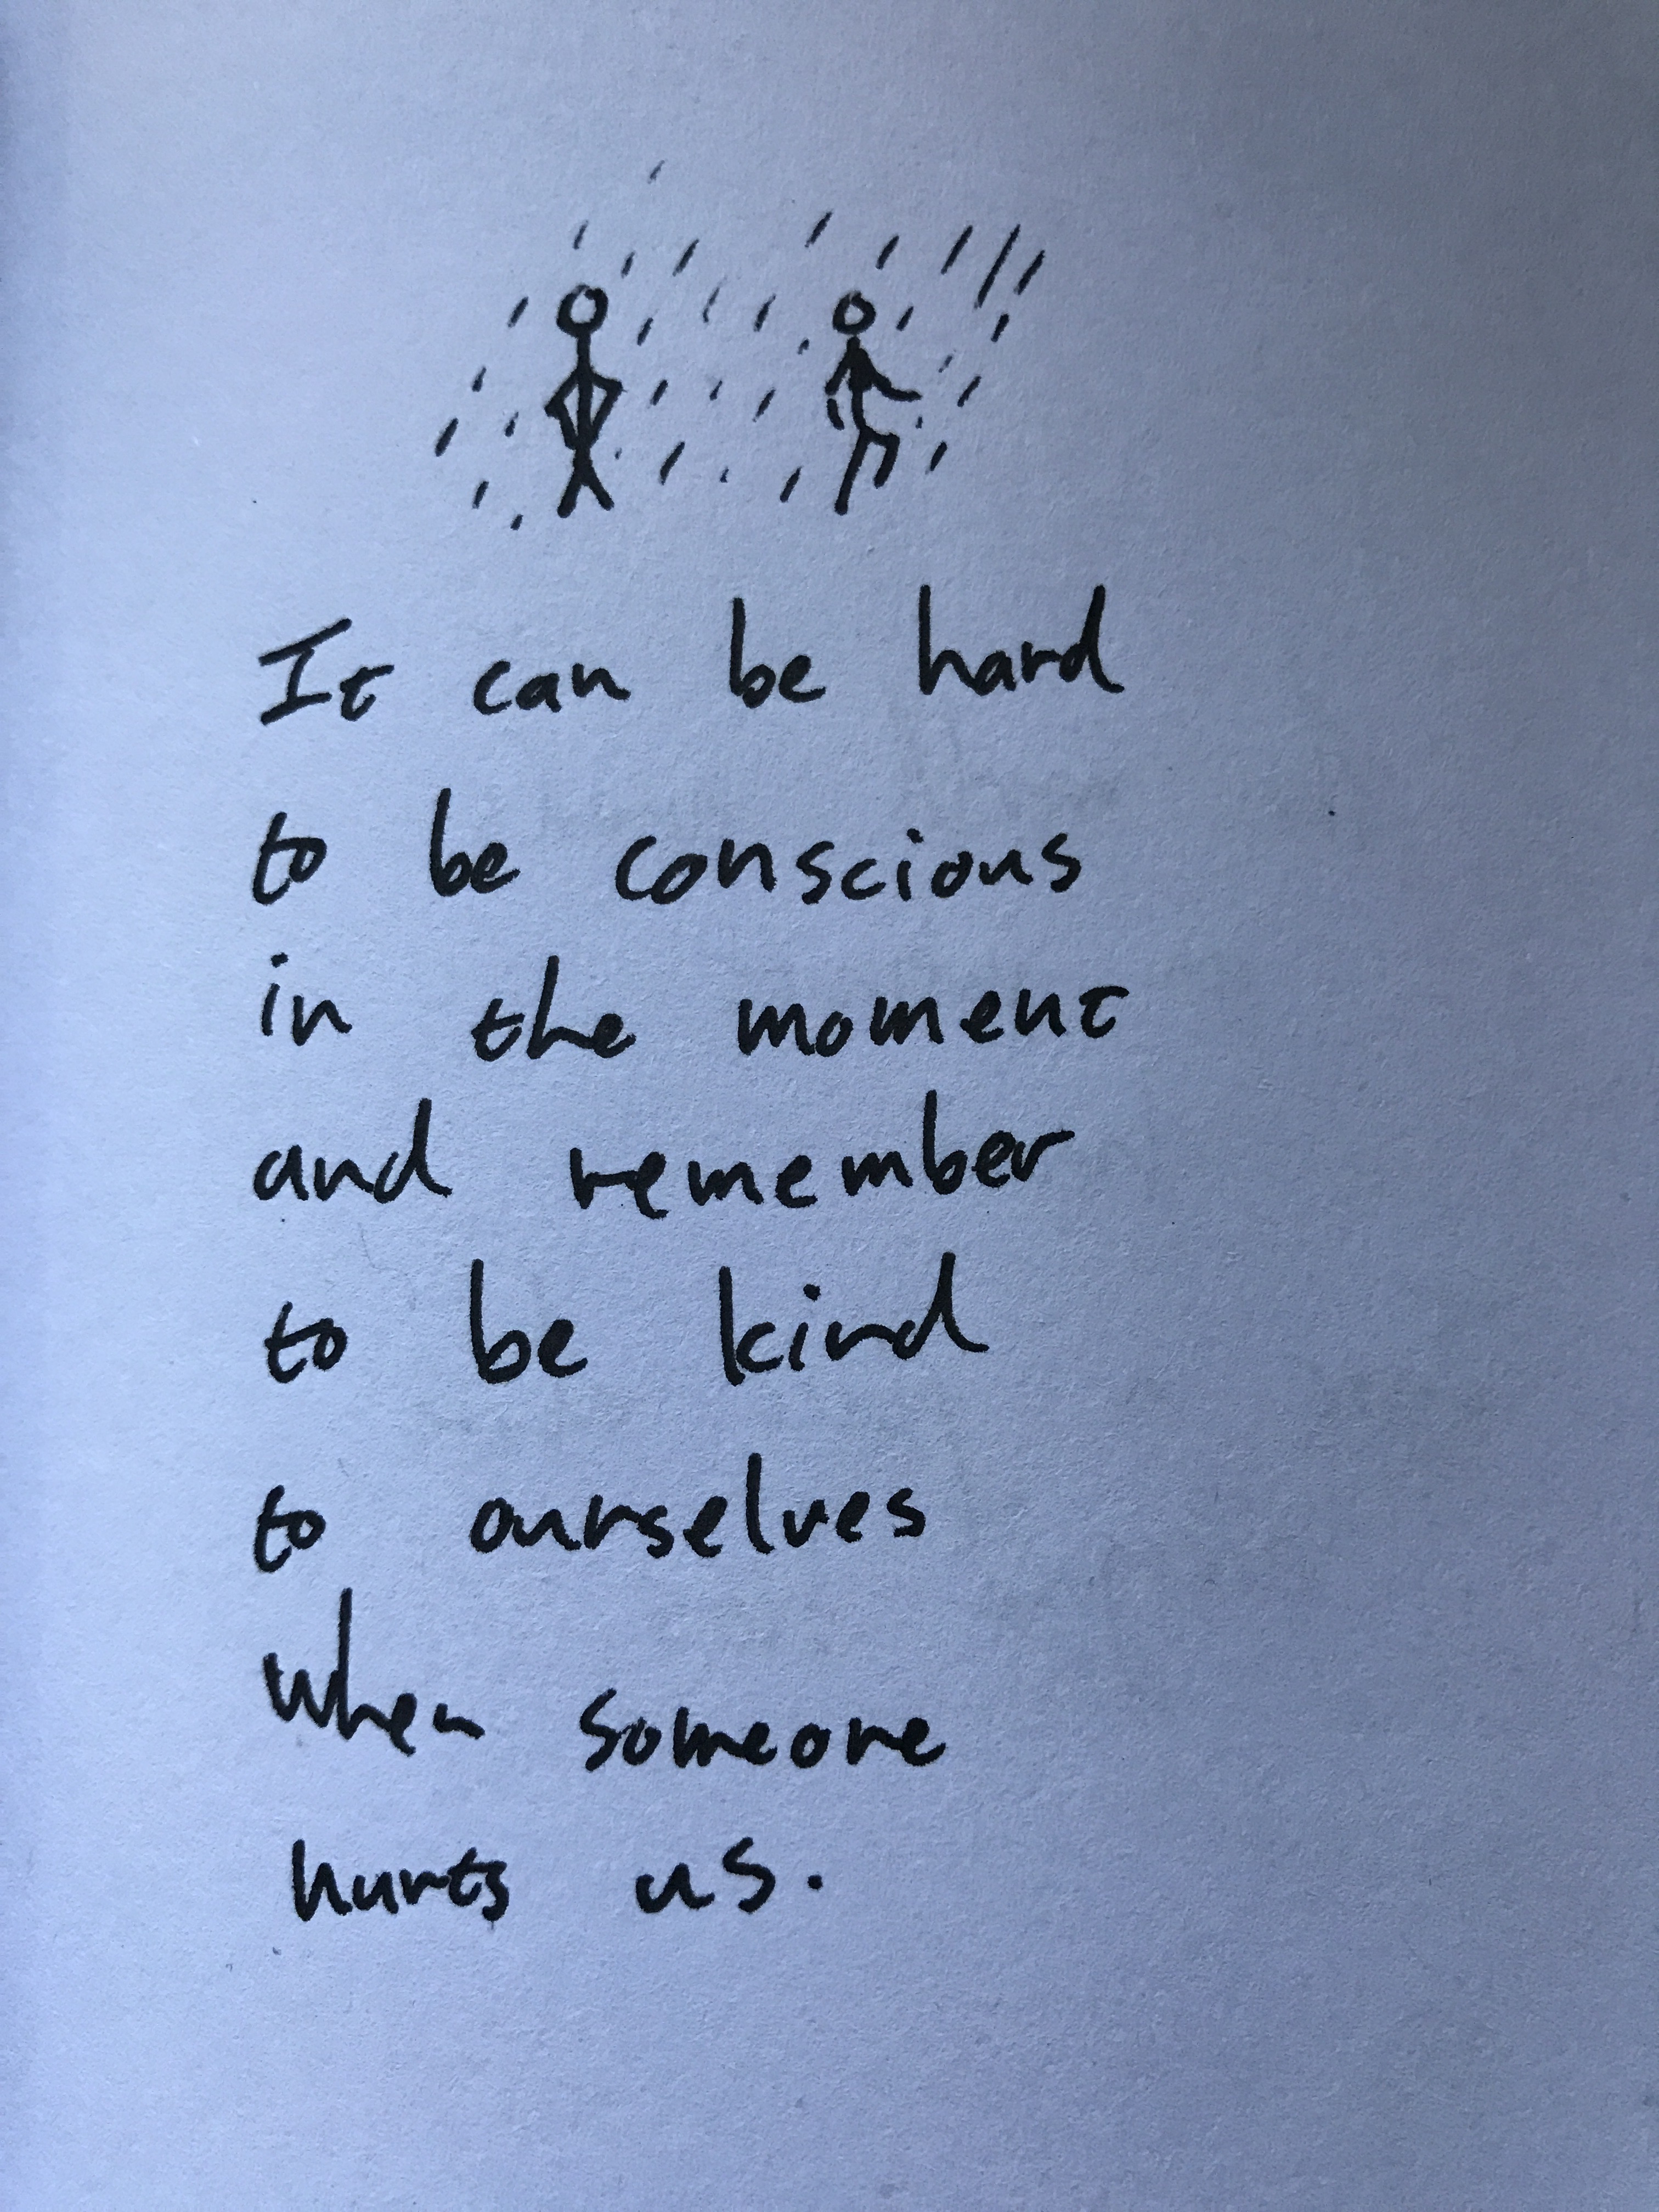 It can be hard
to be conscious
in the moment
and remember
to be kind
to ourselves
when someone
hurts us.